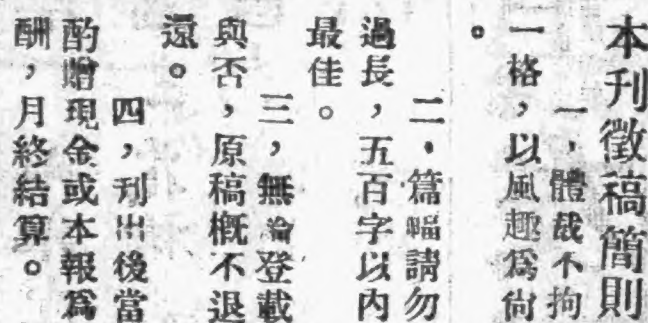 本刊徵稿簡則
一，體裁不拘
一格，以風趣爲尙
。
二，篇幅請勿
過長，五百字以內
最佳。
三，無論登載
與否，原稿概不退
還。
四，刊出後當
酌贈現金或本報爲
酬，月終結算。